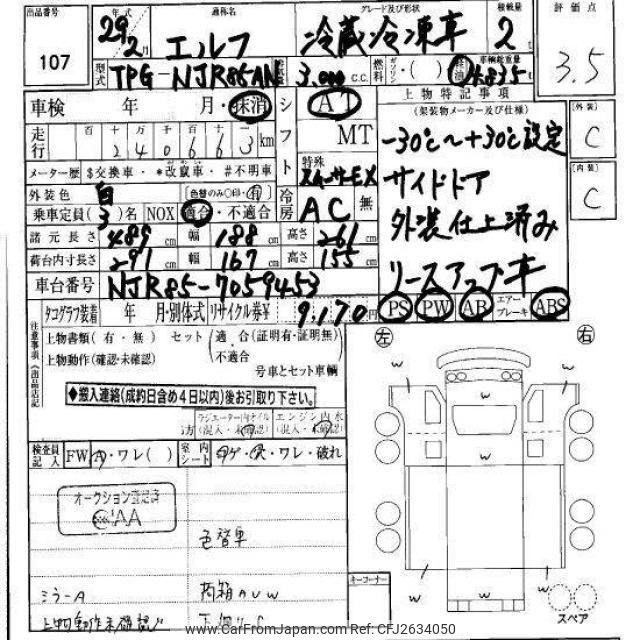 出品番号 年式 通称名 グレード及び形状 積載量 評価点
107 29年2月 エルフ 冷蔵冷凍車 2t 3.5
型式 TPG-NJR85AN 排気量 3,000 C.C. 燃料 ガソリン・( ) 軽油 車輌総重量 4835
車検 年 月・抹消 シフト AT 上物特記事項
(架装物メーカー及び仕様) 外装 C
走行 百 十 万 千 百 十 一
240663 km MT -30℃〜+30℃設定
メーター歴 $交換車・*改竄車・#不明車 特殊 スムーサーEX サイドドア 内装 C
外装色 白 (色替のみ○印・有) 冷房 AC 無
乗車定員(3)名 NOX 適合・不適合 外装仕上済み
諸元長さ 489cm 幅 188cm 高さ 261cm
荷台内寸長さ 291cm 幅 167cm 高さ 155cm リースアップ車
車台番号 NJR85-7059453
タコグラフ装着 年 月・別体式 リサイクル券¥ 9,170 PS PW AB エアーブレーキ ABS
注意事項(出品店記
上物書類(有・無) セット(適合(証明有・証明無)
上物動作(確認・未確認) 不適合
号車とセット車輌
左 右
◆搬入連絡(成約日含め4日以内)後お引取り下さい。
ラジエーター内オイル エンジン内水
(混入・未確認) (混入・未確認)
検査員記入 FW A・ワレ( ) 室内シート コゲ・穴・ワレ・破れ
オークション査定済
CAA
色替車
ミラーA 荷箱AUW
上物動作未確認
w
w
w
w
w
w
w
コーナー
スペア
www.CarFromJapan.com Ref: CFJ2634050